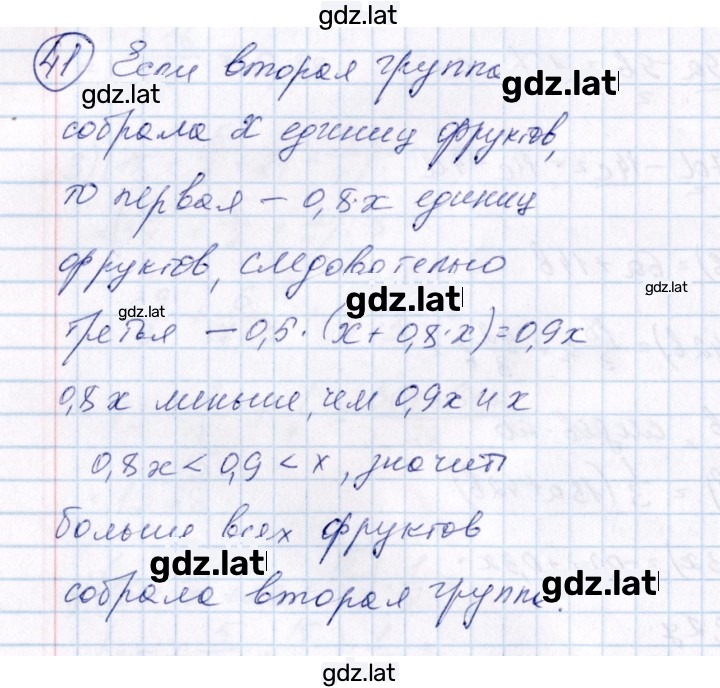 gdz.lat
41 Если вторая группа
gdz.lat gdz.lat
собрала x единиц фруктов,
то первая – 0,8·x единиц
фруктов, следовательно
gdz.lat gdz.lat gdz.lat
третья – 0,5·(x+0,8·x)=0,9x
0,8x меньше, чем 0,9x и x
0,8x < 0,9 < x, значит
больше всех фруктов
gdz.lat gdz.lat
собрала вторая группа.
gdz.lat